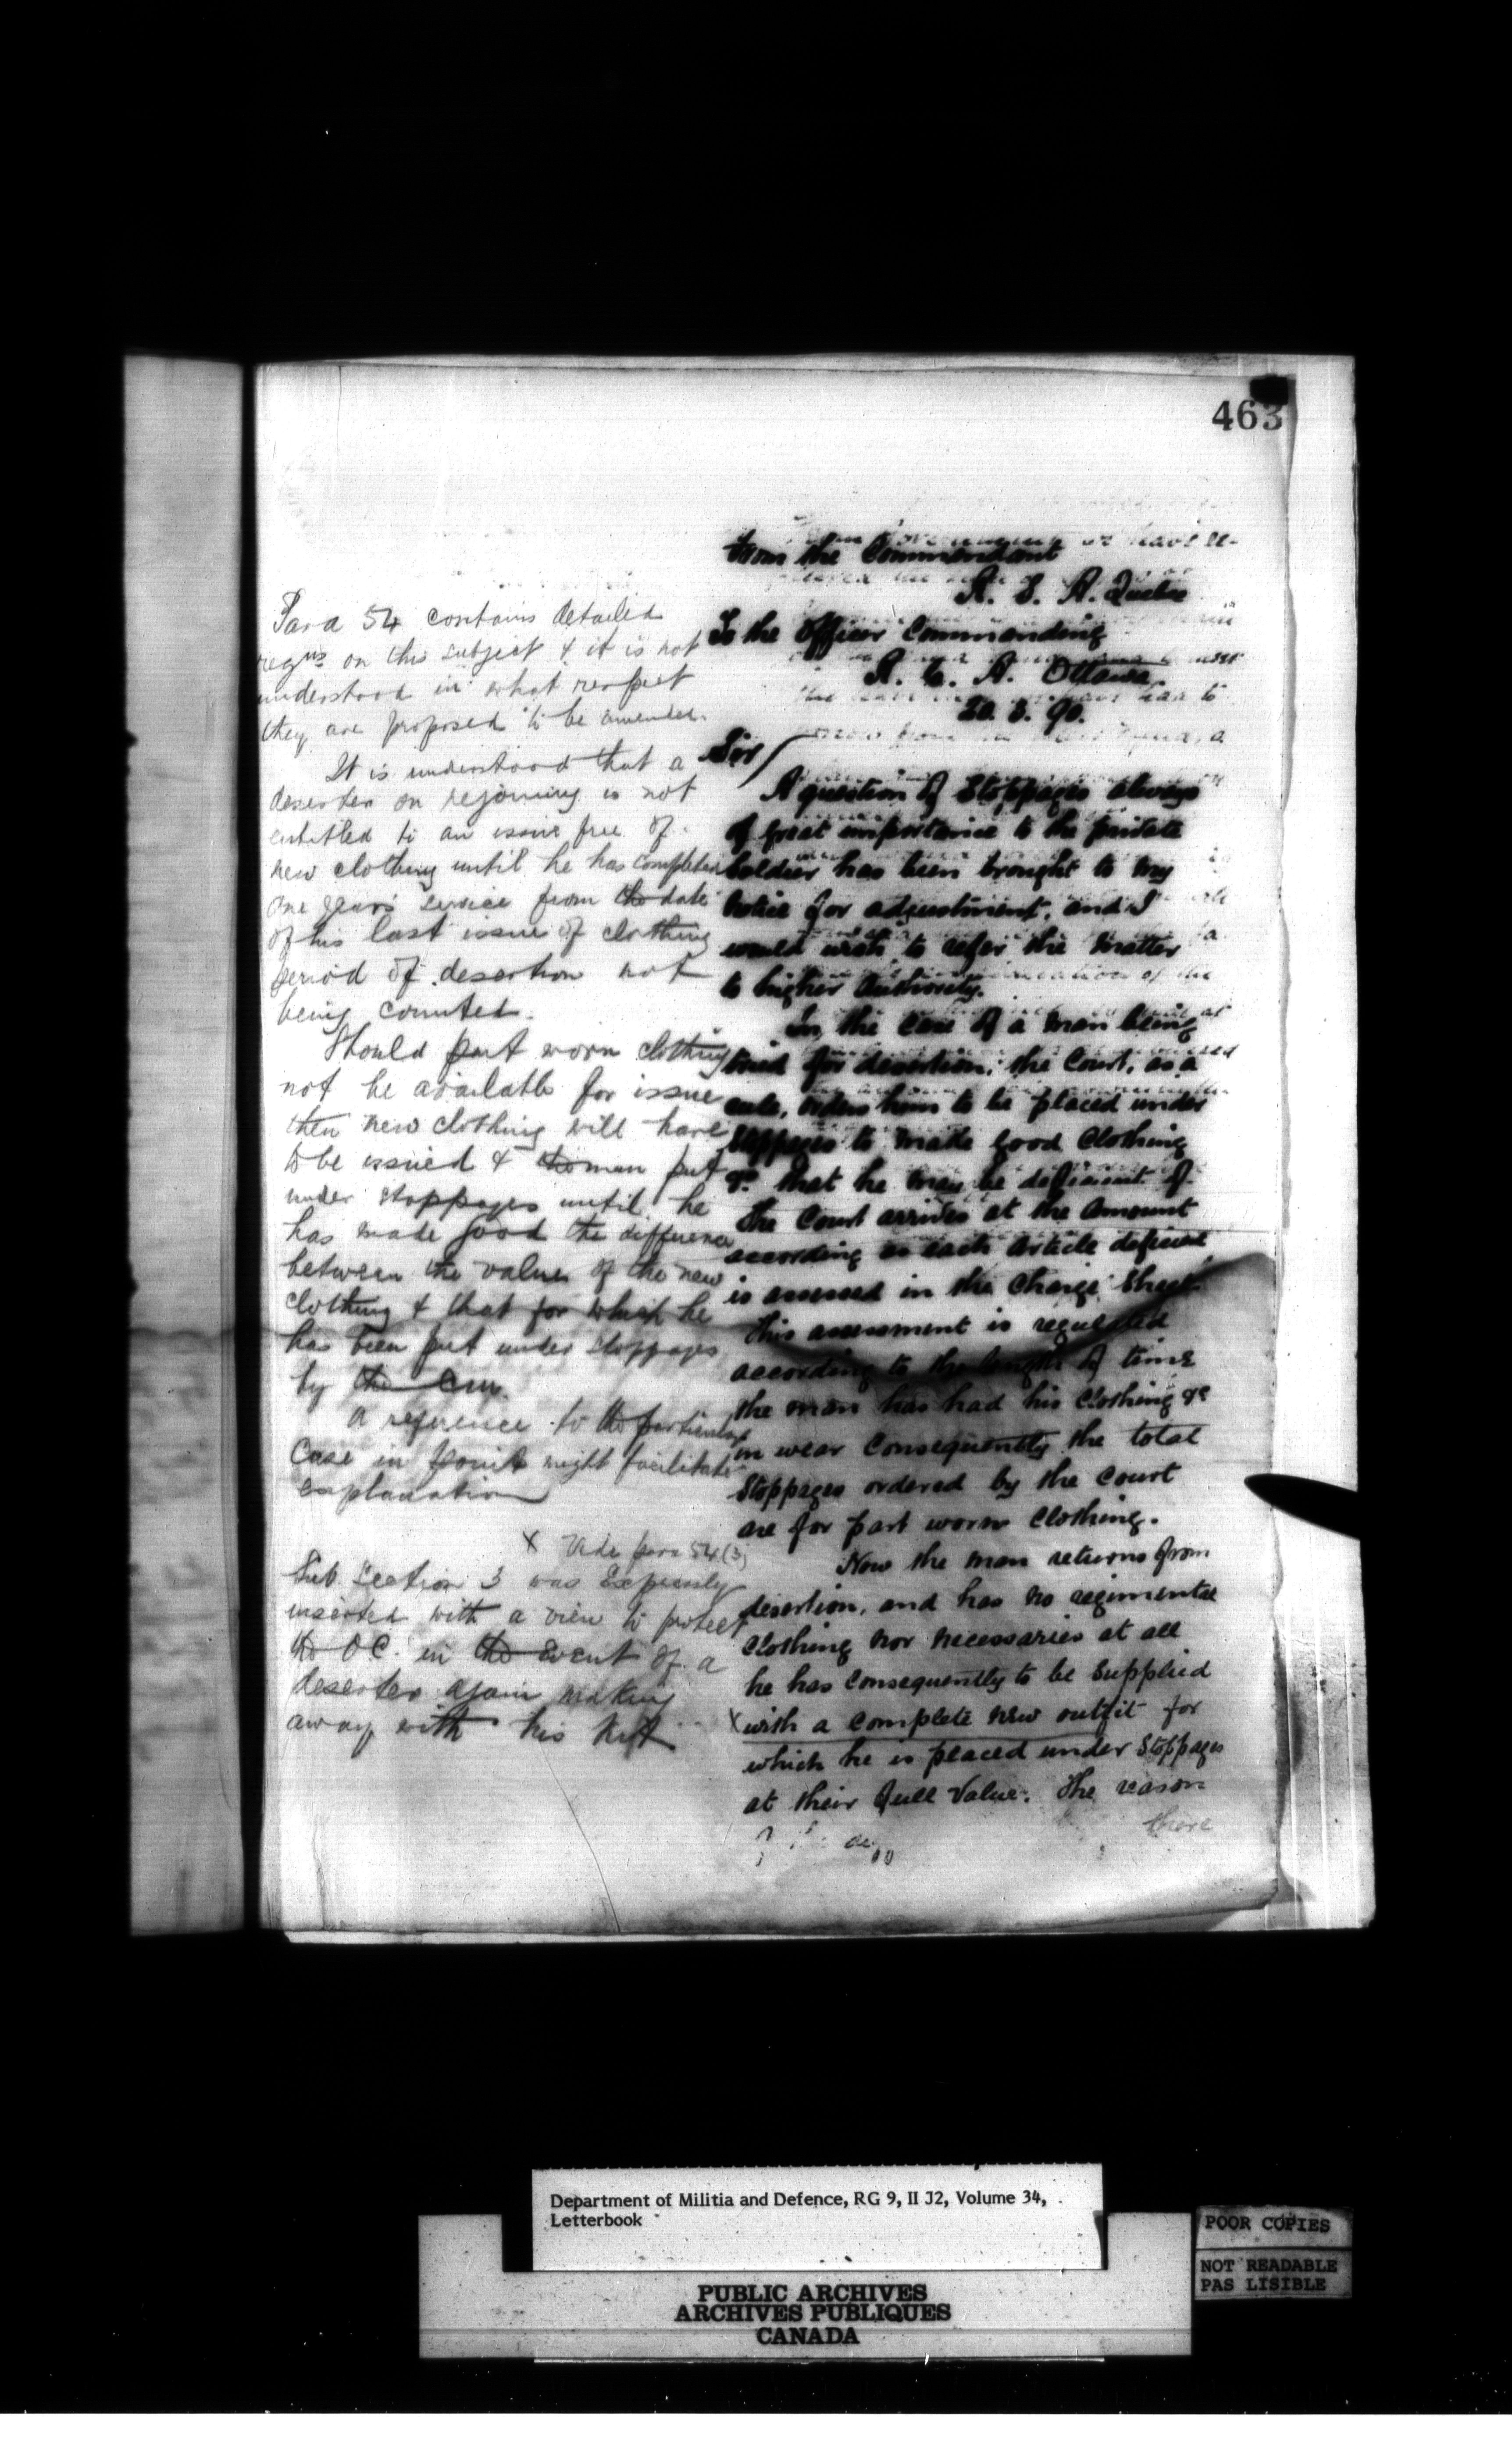 463
Para 54 contains detailed
regns on this subject & it is not
understood in what respect
they are proposed to be amended.
It is understood that a
deserter on rejoining is not
entitled to an issue free of
new clothing until he has completed
one years service from the date
of his last issue of clothing
period of desertion not
being counted.
Should part worn clothing
not be available for issue
then new clothing will have
to be issued & the man put
under stoppages until he
has made good the difference
between the value of the new
clothing & that for which he
has been put under stoppages
by the
A reference to the particular
case in point might facilitate
explanation
X Vide para 54 (3)
Sub Section 3 was expressly
inserted with a view to protect
the O.C. in the event of a
deserter again making
away with his kit
From the Commandant
R. S. A. Quebec
To the Officer Commanding
R. C. A. Ottawa.
20. 3. 90.
Sir
A question of Stoppages always
of great importance to the private
Soldier has been brought to my
notice for adjustment, and I
would wish to refer the matter
to higher Authority.
In the case of a man being
tried for desertion, the Court, as a
rule, orders him to be placed under
Stoppages to make good Clothing
&c that he may be deficient of
The Court arrives at the amount
according as each article deficient
is assessed in the Charge Sheet
This assessment is regulated
according to the length of time
the man has had his Clothing &c
in wear Consequently the total
Stoppages ordered by the Court
are for part worn Clothing.
Now the man returns from
desertion, and has no regimental
Clothing nor necessaries at all
he has Consequently to be Supplied
X with a complete new outfit for
which he is placed under Stoppages
at their full Value. The reason
there
Department of Militia and Defence, RG 9, II J2, Volume 34,
Letterbook
POOR COPIES
NOT READABLE
PAS LISIBLE
PUBLIC ARCHIVES
ARCHIVES PUBLIQUES
CANADA